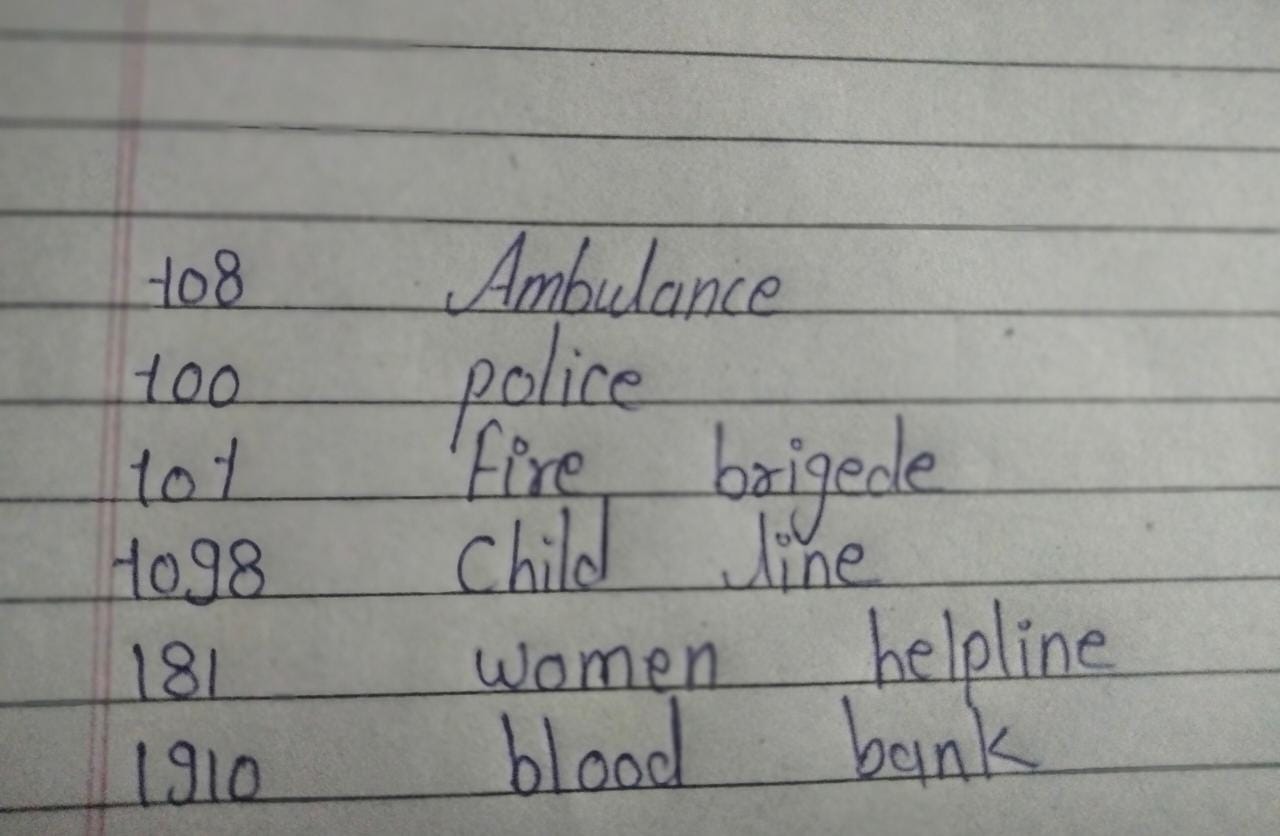 108 Ambulance
100 police
101 Fire brigede
1098 Child line
181 women helpline
1910 blood bank